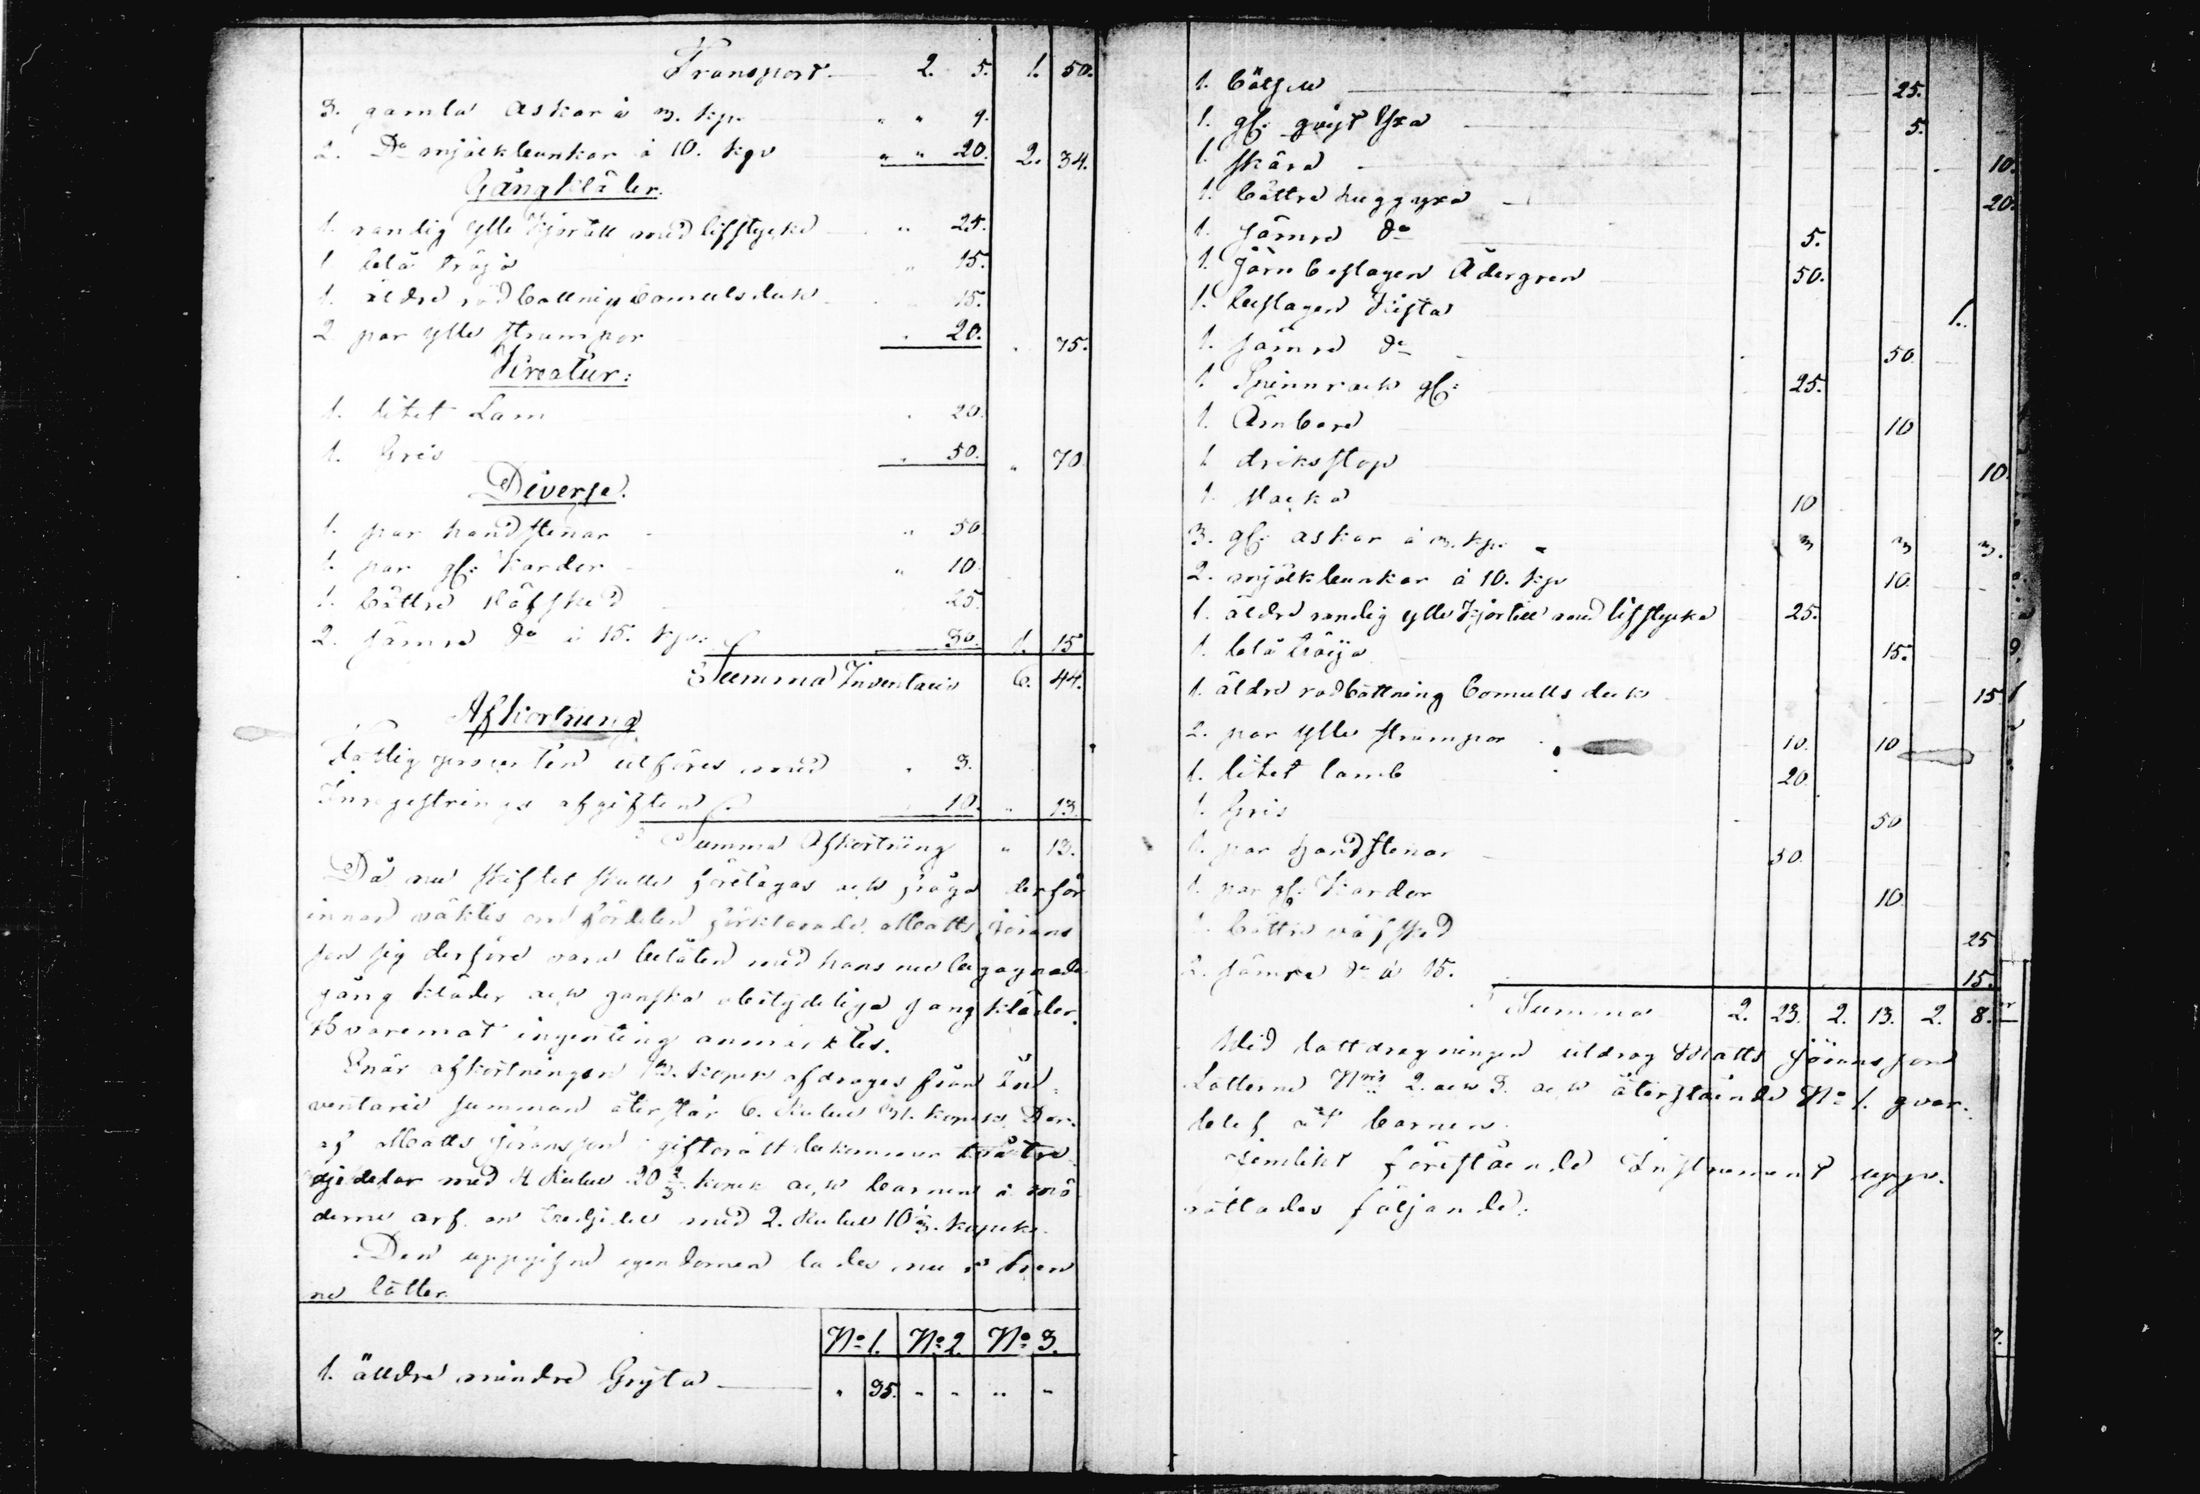 Transport 2. 5. 1. 50.
3. gamla askar à 3. kp. " " 9.
2. Do mjölkbunkar à 10. kpr " " 20. 2. 34.
Gångkläder.
1. randig ylle Kjortill med lifstycke " 25.
1 blå tröja " 15.
1. äldre rödbottnig bomulsduk " 15.
2 par ylle strumpor " 20. " 75.
Kreatur:
1. litet Lam " 20.
1. Gris " 50. " 70.
Diverse.
1. par handstenar " 50
1. par gl: Kardor " 10
1. bättre Väfsked 25.
2. sämre do à 15. kp: 30. 1. 15
Summa Inventarii 6. 44.
Afkortning
Fattigprocenten utföres med " 3.
Inregistrings afgiften 10. " 13.
Summa Afkortning " 13.
Då nu skiftet skulle företagas och fråga derför
innan väktes om fördelen förklarade Matts Jörans
son sig derföre vara belåten med hans nu begagnade
gång kläder och ganska obetydeliga gang kläder,
Hvaremot ingenting anmärktes.
Enär afkortningen 13. kopek afdrages från In-
ventarii summan återstår 6. Rubel 31. kopek, Der-
af Matts Jöransson i giftorätt bekommer två tre
djedelar med 4 Rubel 20 2/3 kopek och barnen i mö
derne arf en tredjedel med 2. Rubel 10 1/3. kopek.
Den uppgifne egendomen lades nu i tren
ne lotter
No 1. No 2. No 3.
1. älldre mindre Gryta " 35. " " " "
1. 25.
1. gl: Yxa 5.
1. skära 10.
1. bättre huggyxa 20.
1. sämre do 5.
1. Järnbeslagen Ådergren 50.
1. beslagen Kista 1.
1. sämre do 50.
1. Spinnrock gl: 25.
1. Ämbare 10
1 driksstop 10.
1. 10
3. gl: askar à 3. kp. 3 3 3.
2. mjölkbunkar à 10. kpr 10.
1. äldre randig ylle Kjortill med lifstycke 25.
1. blå tröija 15.
1. äldre rödbottning bomullsduk 15
2. par ylle strumpor 10. 10
1. litet lamb 20
1. Gris 50
1. par handstenar 50
1. par gl: Kardor 10
1. bättre väfsked 25
2. sämre do à 15. 15.
Summa 2. 23. 2. 13. 2. 8.
Wid lottdragningen utdrog Matts Jöransson
Lotterne Nris 2. och 3. och återstående No 1. qvar-
blef åt barnen.
Lemlikt förestående Instrument upp-
rättades följande: